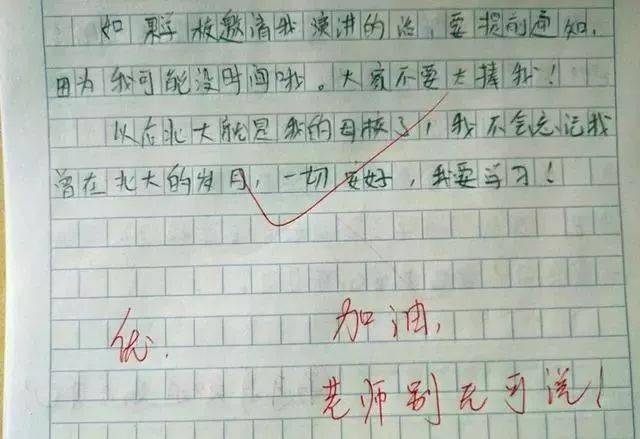 如果学校邀请我演讲的话,要提前通知,
因为我可能没时间哦。大家不要太捧我!
以后北大就是我的母校了,我不会忘记我
曾在北大的岁月,一切安好,我要学习!
优.
加油,
老师别无可说!